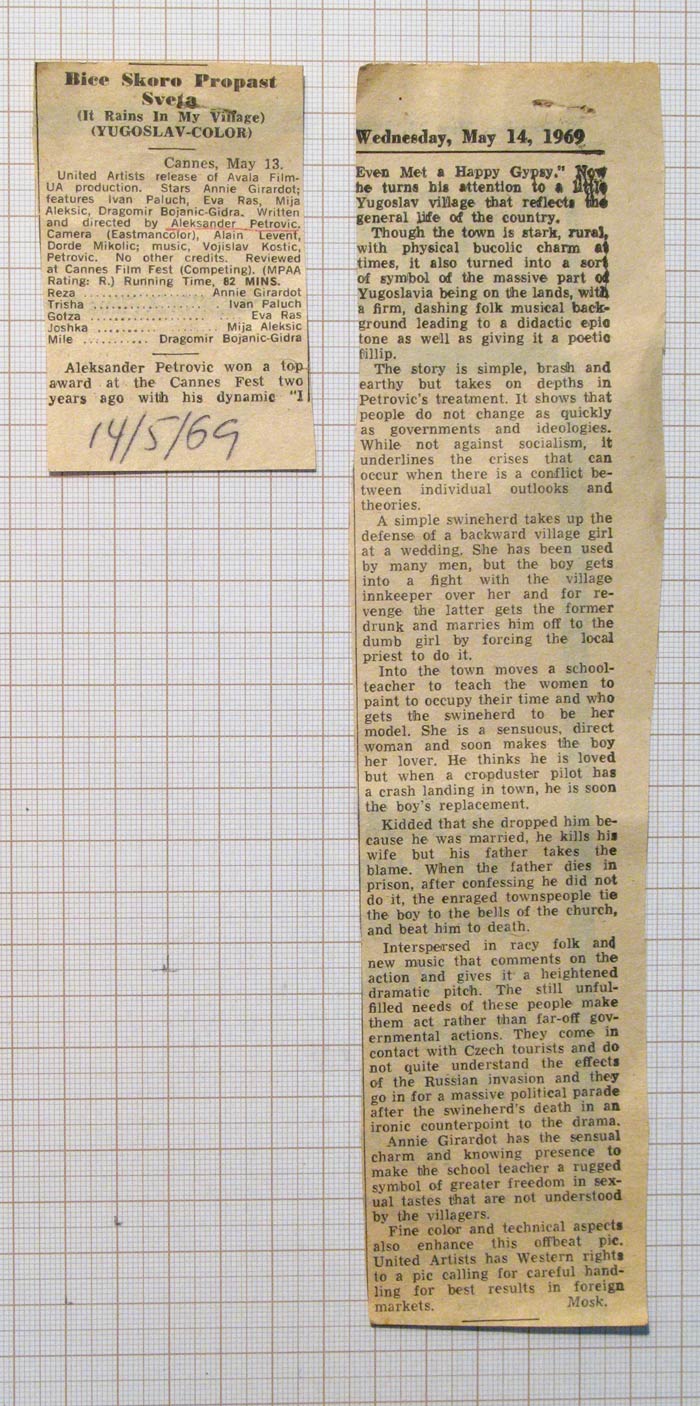 Bice Skoro Propast
Sveta
(It Rains In My Village)
(YUGOSLAV-COLOR)
Cannes, May 13.
United Artists release of Avala Film-
UA production. Stars Annie Girardot;
features Ivan Paluch, Eva Ras, Mija
Aleksic, Dragomir Bojanic-Gidra. Written
and directed by Aleksander Petrovic.
Camera (Eastmancolor), Alain Levent,
Dorde Mikolic; music, Vojislav Kostic,
Petrovic. No other credits. Reviewed
at Cannes Film Fest (Competing). (MPAA
Rating: R.) Running Time, 82 MINS.
Reza .................. Annie Girardot
Trisha ................... Ivan Paluch
Gotza ...................... Eva Ras
Joshka ............... Mija Aleksic
Mile .......... Dragomir Bojanic-Gidra
Aleksander Petrovic won a top
award at the Cannes Fest two
years ago with his dynamic "I
14/5/69
Wednesday, May 14, 1969
Even Met a Happy Gypsy." Now
he turns his attention to a little
Yugoslav village that reflects the
general life of the country.
Though the town is stark, rural,
with physical bucolic charm at
times, it also turned into a sort
of symbol of the massive part of
Yugoslavia being on the lands, with
a firm, dashing folk musical back-
ground leading to a didactic epic
tone as well as giving it a poetic
fillip.
The story is simple, brash and
earthy but takes on depths in
Petrovic's treatment. It shows that
people do not change as quickly
as governments and ideologies.
While not against socialism, it
underlines the crises that can
occur when there is a conflict be-
tween individual outlooks and
theories.
A simple swineherd takes up the
defense of a backward village girl
at a wedding. She has been used
by many men, but the boy gets
into a fight with the village
innkeeper over her and for re-
venge the latter gets the former
drunk and marries him off to the
dumb girl by forcing the local
priest to do it.
Into the town moves a school-
teacher to teach the women to
paint to occupy their time and who
gets the swineherd to be her
model. She is a sensuous, direct
woman and soon makes the boy
her lover. He thinks he is loved
but when a cropduster pilot has
a crash landing in town, he is soon
the boy's replacement.
Kidded that she dropped him be-
cause he was married, he kills his
wife but his father takes the
blame. When the father dies in
prison, after confessing he did not
do it, the enraged townspeople tie
the boy to the bells of the church,
and beat him to death.
Interspersed in racy folk and
new music that comments on the
action and gives it a heightened
dramatic pitch. The still unful-
filled needs of these people make
them act rather than far-off gov-
ernmental actions. They come in
contact with Czech tourists and do
not quite understand the effects
of the Russian invasion and they
go in for a massive political parade
after the swineherd's death in an
ironic counterpoint to the drama.
Annie Girardot has the sensual
charm and knowing presence to
make the school teacher a rugged
symbol of greater freedom in sex-
ual tastes that are not understood
by the villagers.
Fine color and technical aspects
also enhance this offbeat pic.
United Artists has Western rights
to a pic calling for careful hand-
ling for best results in foreign
markets. Mosk.